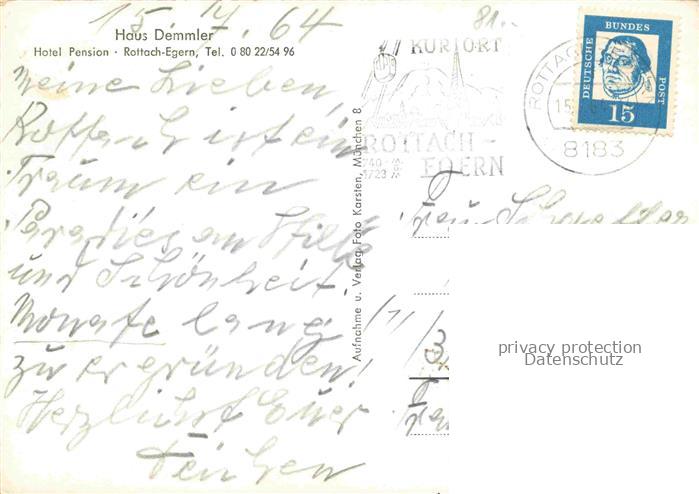 15. 7. 64
Haus Demmler
Hotel Pension · Rottach-Egern, Tel. 0 80 22/54 96
Meine Lieben,
Rottach ist ein
Traum ein
Paradies an Stille
und Schönheit.
Monate lang
zu ergründen!
Herzlichst Euer
Aufnahme u. Verlag Foto Karsten, München 8
81.-
KURORT
ROTTACH-
EGERN
740-
1723
ROTTAC
15.
8183
DEUTSCHE
BUNDES
POST
15
Frau
privacy protection
Datenschutz